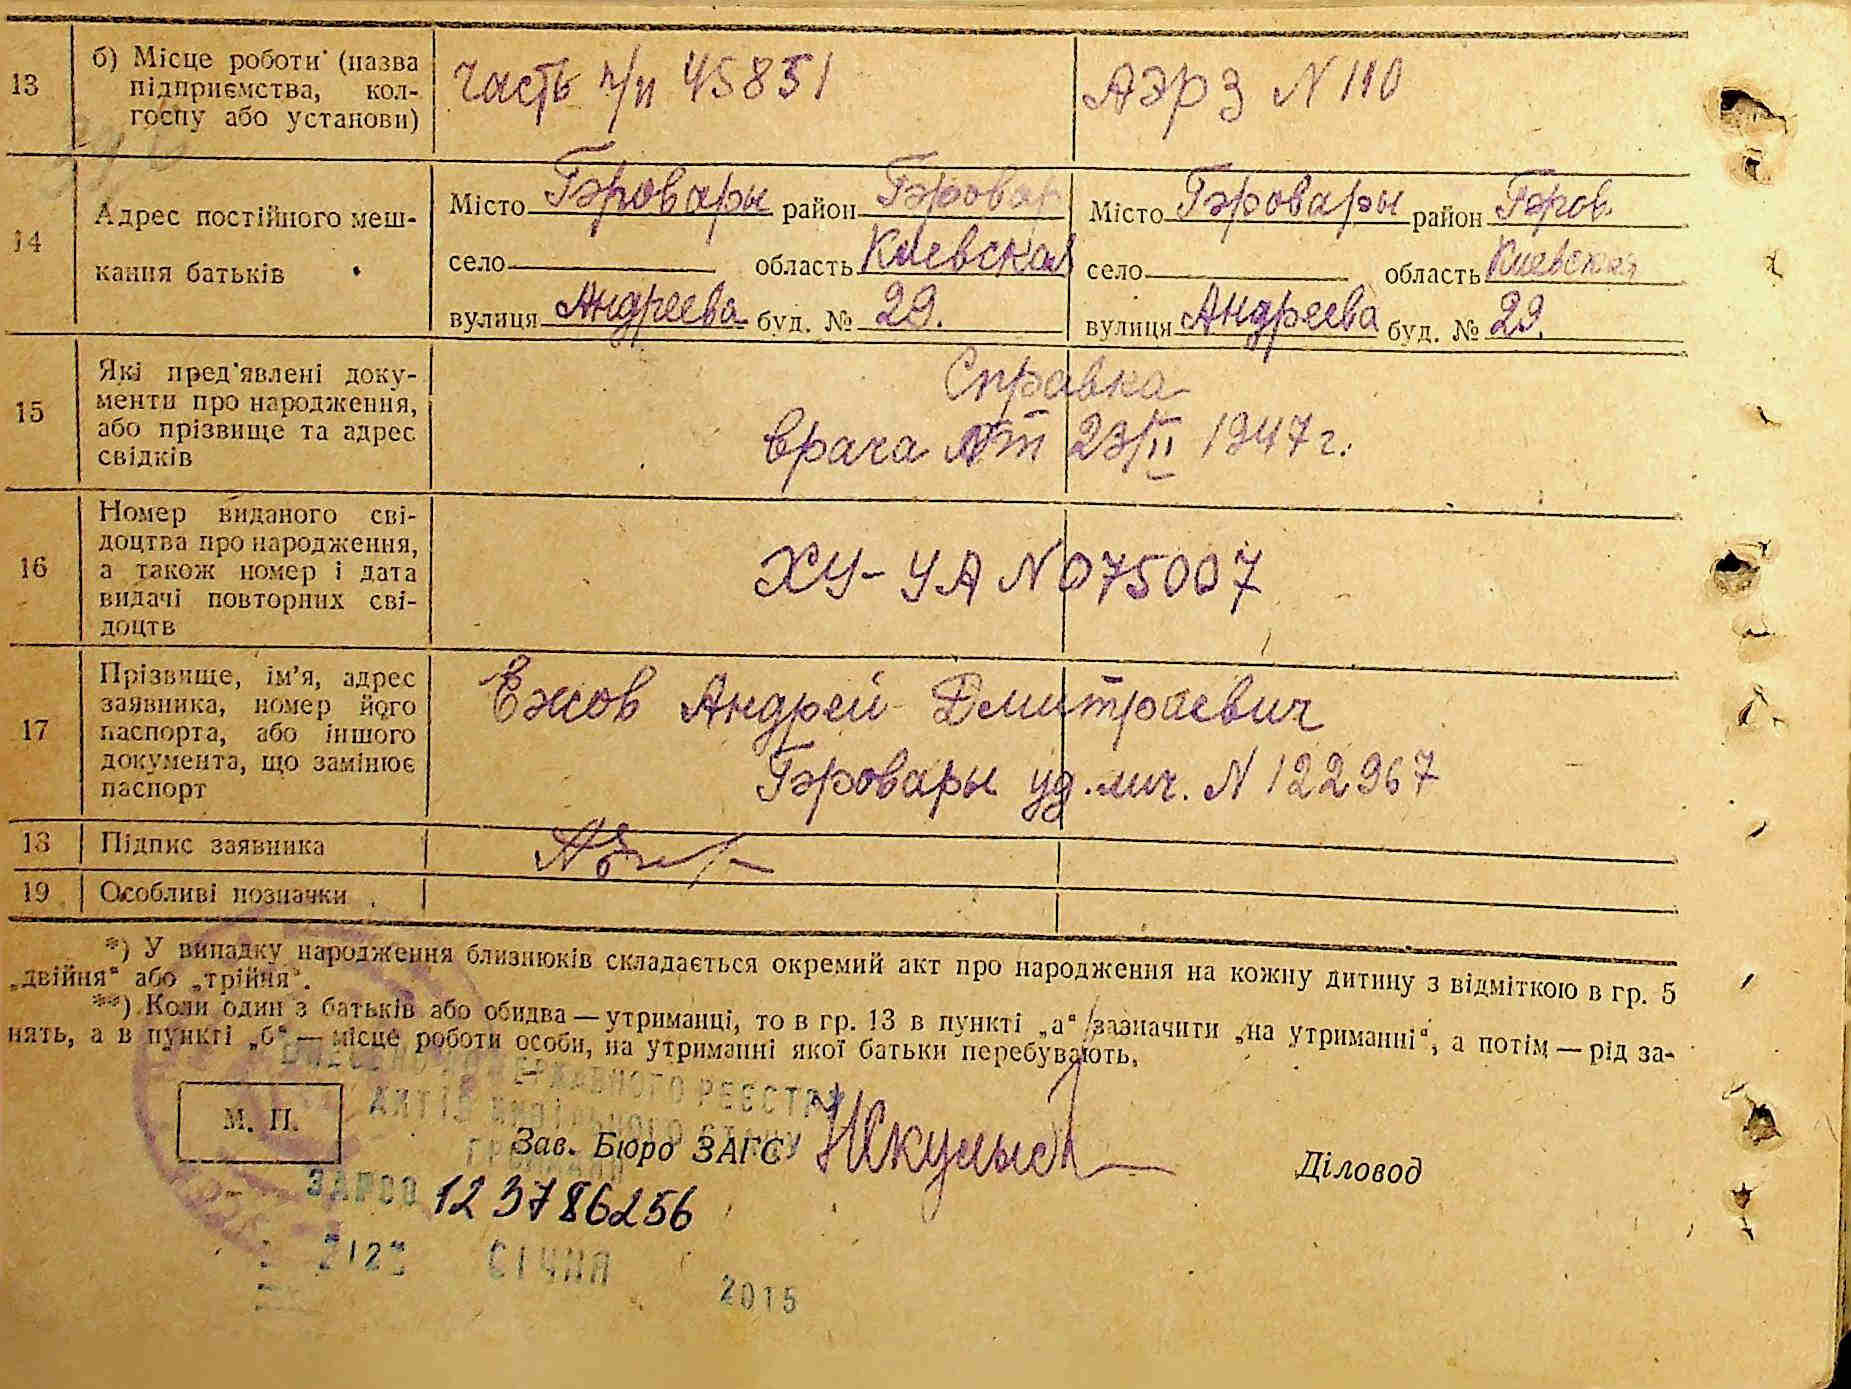 13
б) Місце роботи (назва
підприємства, кол-
госпу або установи)
часть п/п 45851
АЭРЗ N 110
14
Адрес постійного меш-
кання батьків
Місто Бровары район Бровар
село область Киевская
вулиця Андреева буд. № 29.
Місто Бровары район Бров.
село область Киевская
вулиця Андреева буд. № 29.
15
Які пред'явлені доку-
менти про народження,
або прізвище та адрес
свідків
Справка
врача от 23/II 1947 г.
16
Номер виданого сві-
доцтва про народження,
а також номер і дата
видачі повторних сві-
доцтв
ХУ-УА N 075007
17
Прізвище, ім'я, адрес
заявника, номер його
паспорта, або іншого
документа, що замінює
паспорт
Ежов Андрей Дмитриевич
Бровары уд. лич. N 122967
18
Підпис заявника
19
Особливі позначки
*) У випадку народження близнюків складається окремий акт про народження на кожну дитину з відміткою в гр. 5
„двійня“ або „трійня“.
**) Коли один з батьків або обидва — утриманці, то в гр. 13 в пункті „а“ зазначити „на утриманні“, а потім — рід за-
нять, а в пункті „б“ — місце роботи особи, на утриманні якої батьки перебувають.
ВНЕСЕНО ДО ДЕРЖАВНОГО РЕЄСТРУ
АКТІВ ЦИВІЛЬНОГО СТАНУ
ГРОМАДЯН
М. П.
Зав. Бюро ЗАГС
Діловод
ЗАПСО 123786256
СІЧНЯ
2015